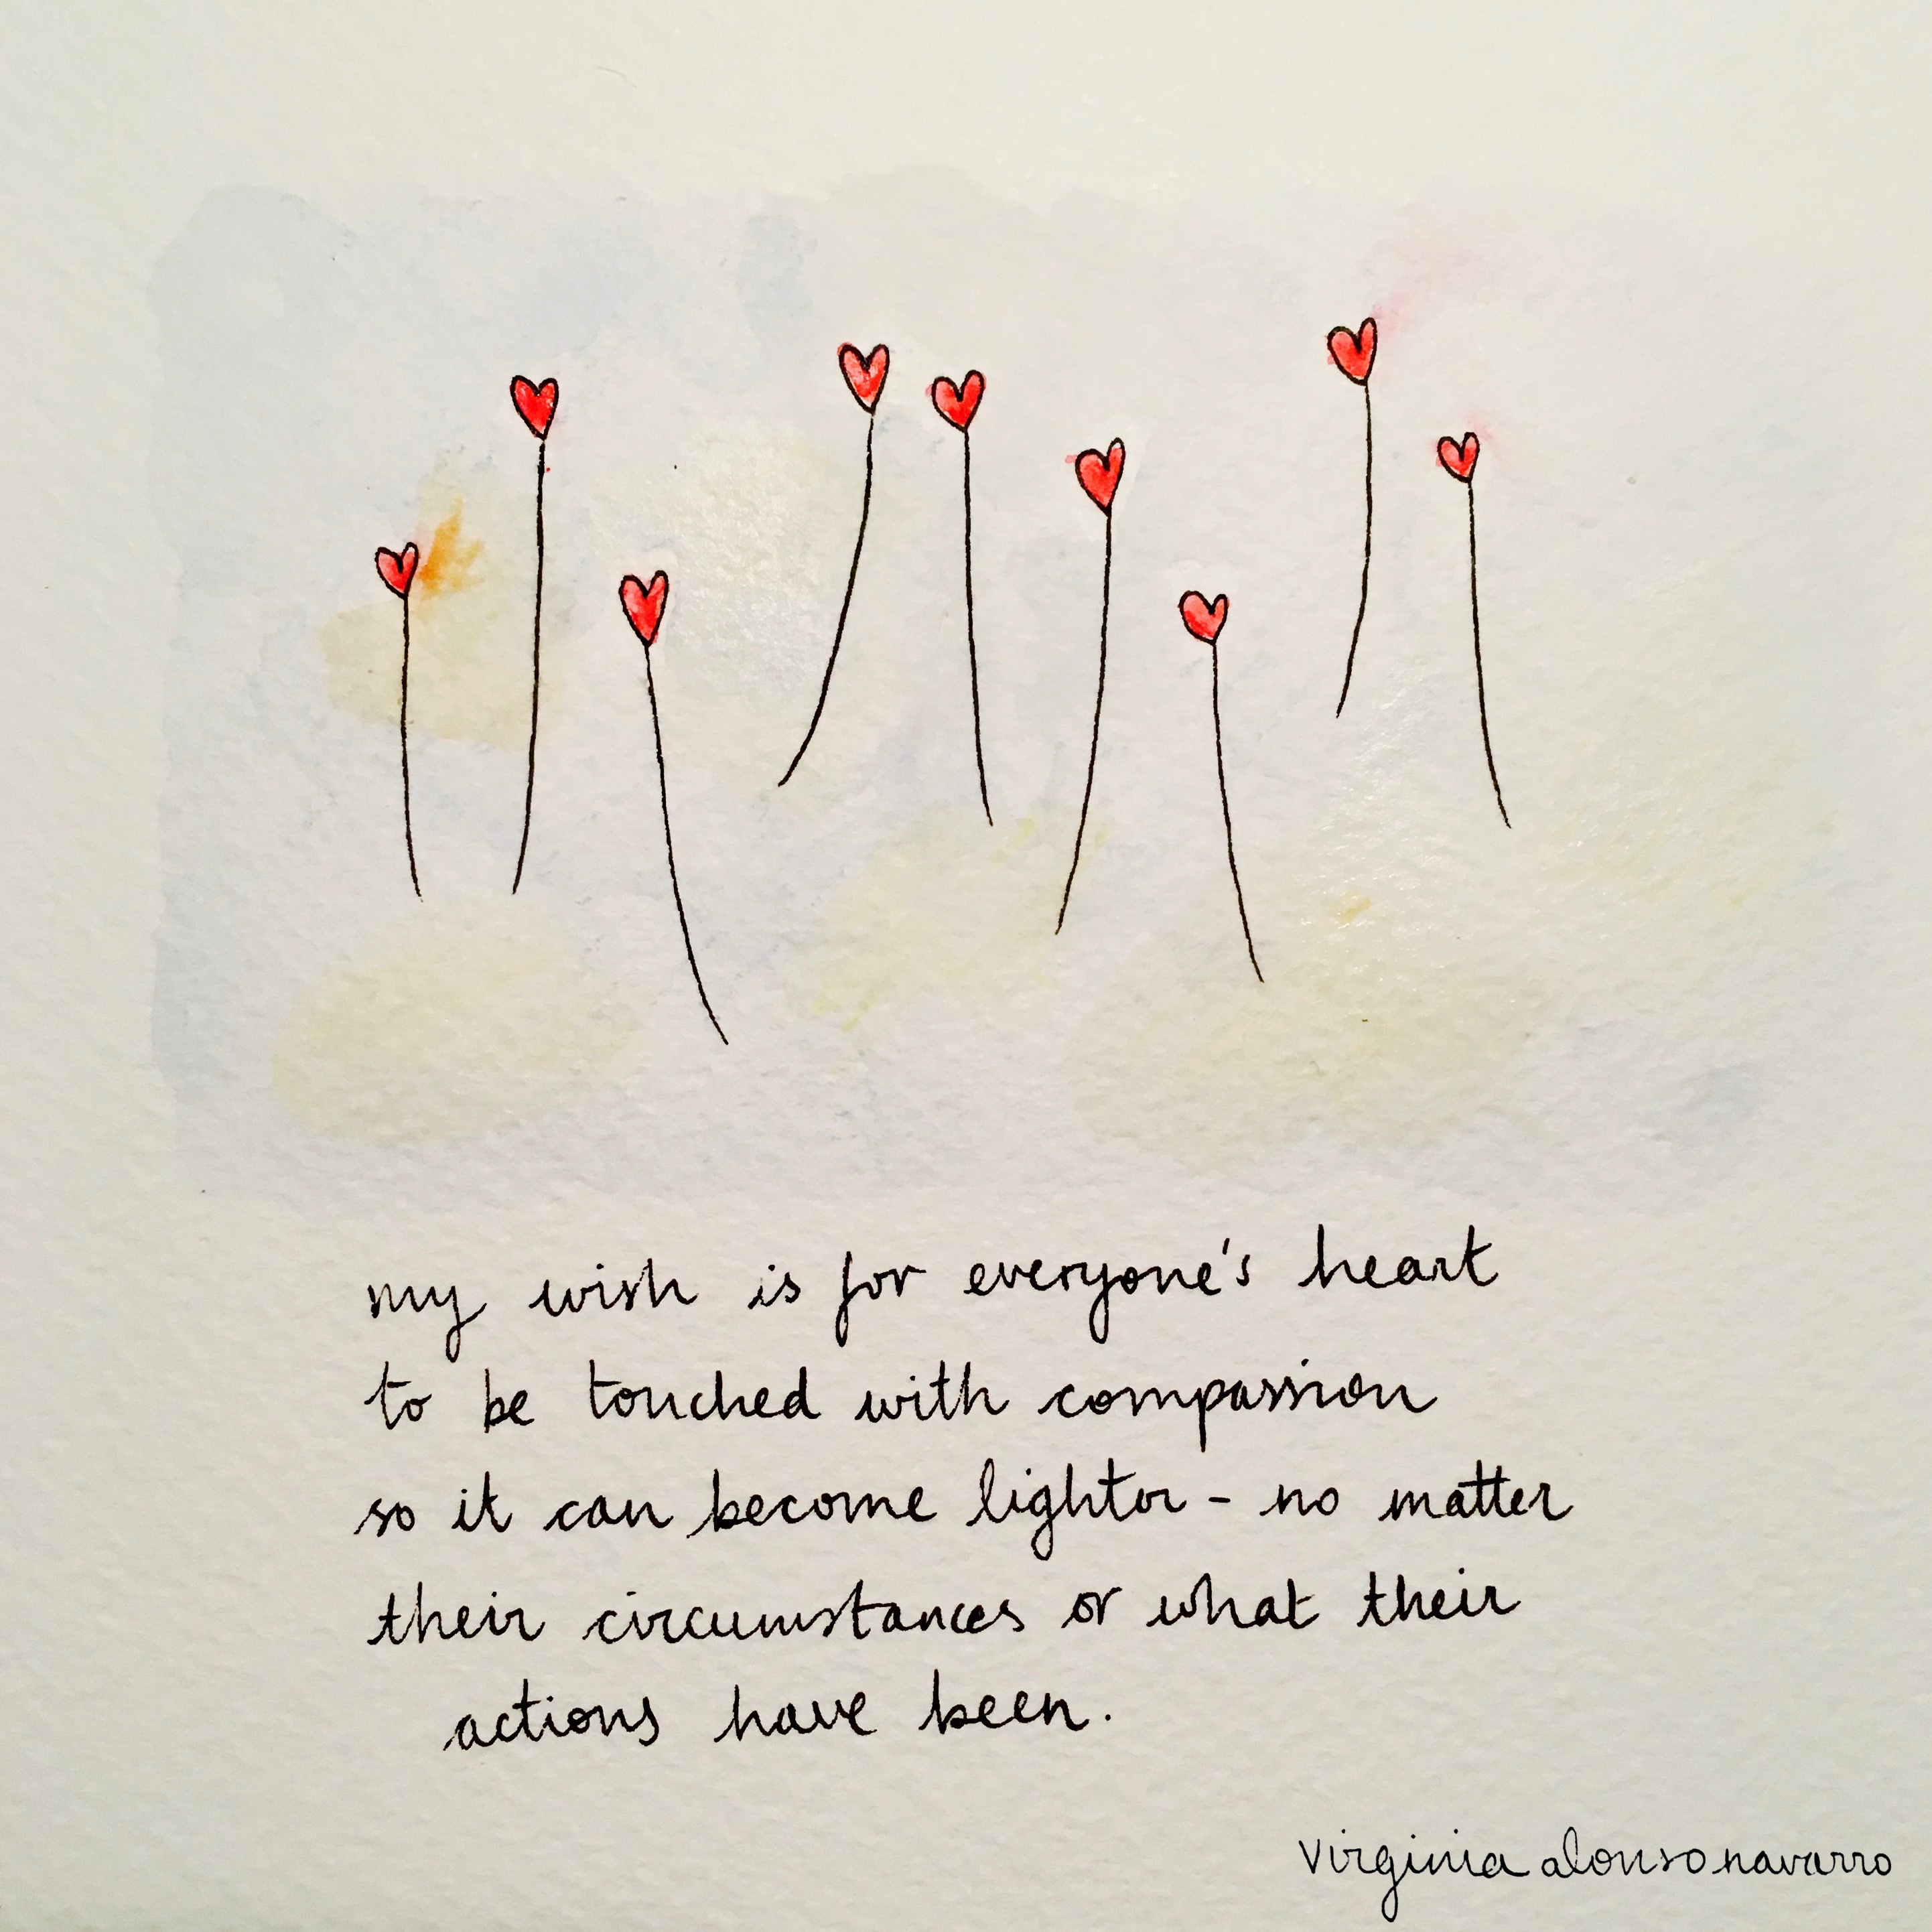 my wish is for everyone's heart
to be touched with compassion
so it can become lighter - no matter
their circumstances or what their
actions have been.
Virginia alonso navarro